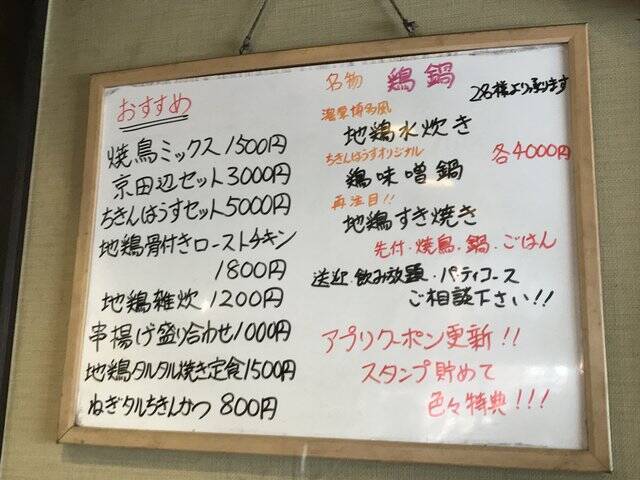 おすすめ
焼鳥ミックス1500円
京田辺セット3000円
ちきんはうすセット5000円
地鶏骨付きローストチキン
1800円
地鶏雑炊 1200円
串揚げ盛り合わせ1000円
地鶏タルタル焼き定食1500円
ねぎタルちきんかつ 800円
名物 鶏鍋
2名様より承ります
濃厚博多風
地鶏水炊き
ちきんはうすオリジナル
鶏味噌鍋
各4000円
再注目!!
地鶏すき焼き
先付・焼鳥・鍋・ごはん
送迎・飲み放題・パティコース
ご相談下さい!!
アプリクーポン更新!!
スタンプ貯めて
色々特典!!!